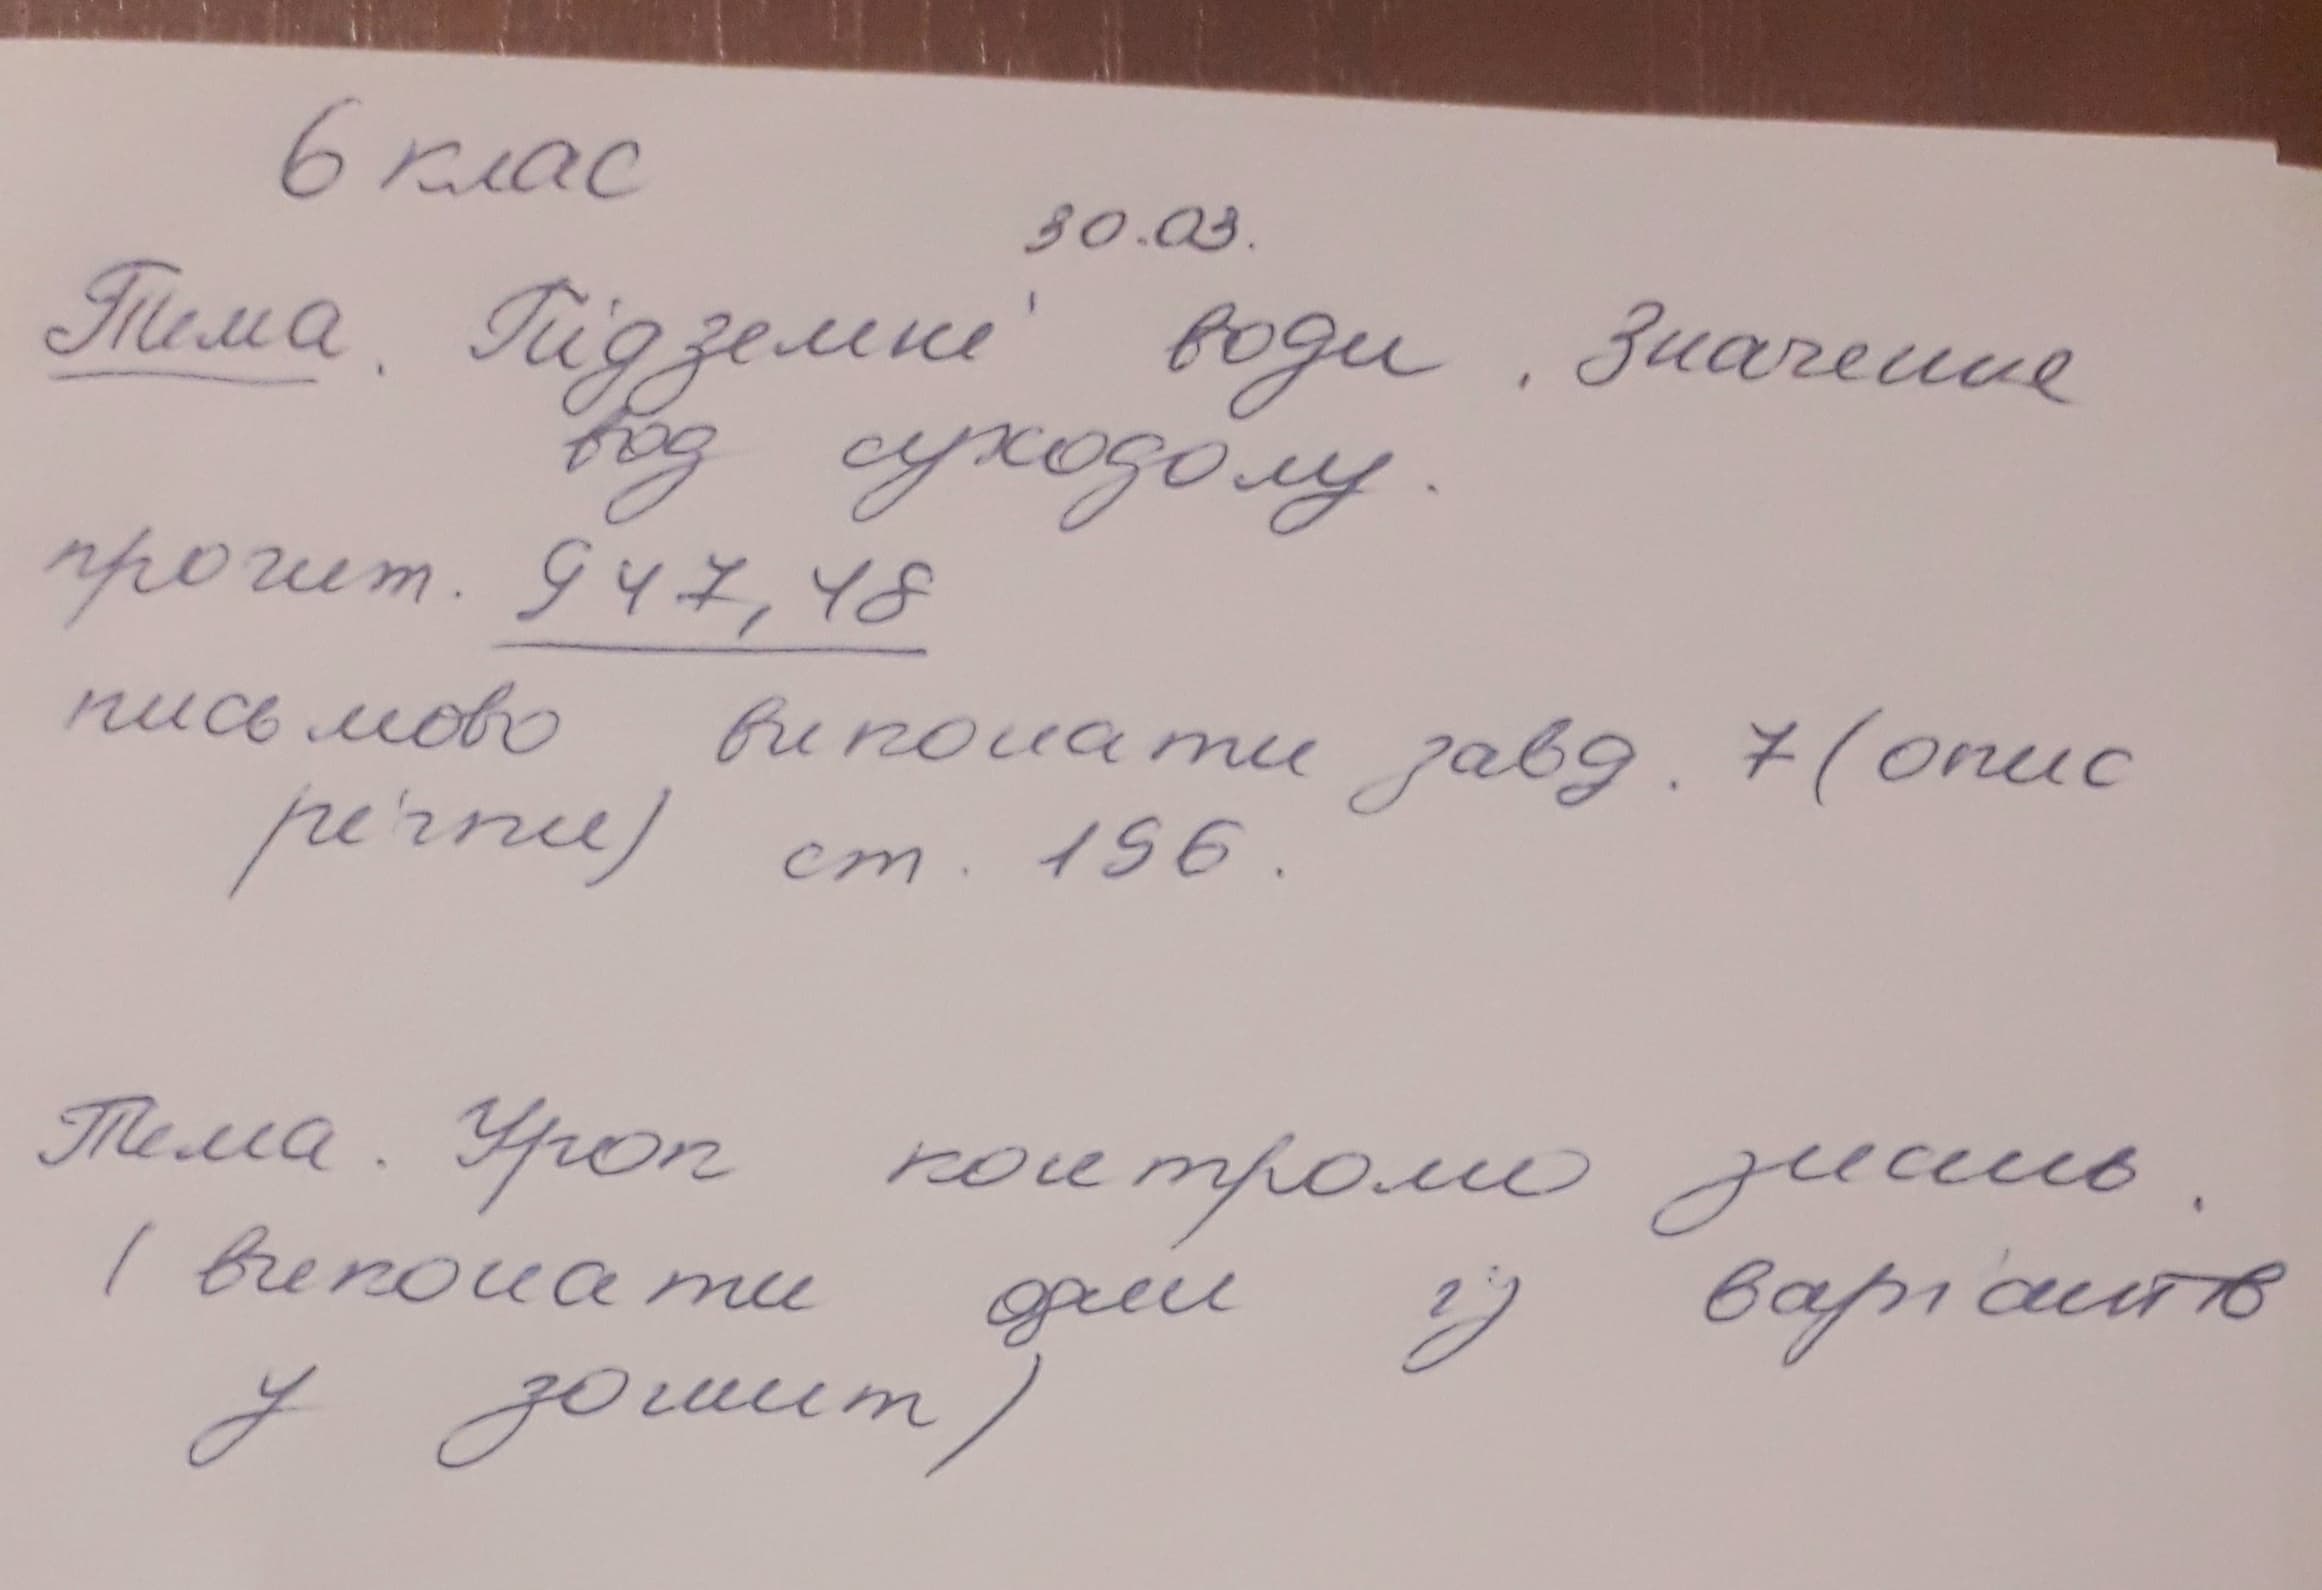 6 клас
30.03.
Тема. Підземні води. Значення
вод суходолу.
прочит. §47, 48
письмово виконати завд. 7 (опис
річки) ст. 196.
Тема. Урок контролю знань.
(виконати один із варіантів
у зошит)